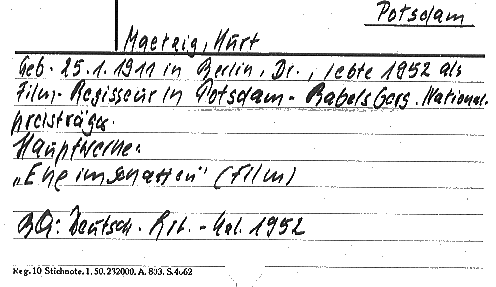 Potsdam
Maetzig, Kurt
Geb. 25.1.1911 in Berlin, Dr., lebte 1952 als
Film-Regisseur in Potsdam-Babelsberg. National-
preisträger.
Hauptwerke:
„Ehe im Schatten" (Film)
BQ: Deutsch. Rbt.-Kal. 1952
Reg. 10 Stichnote. 1. 50. 232000. A. 803. S. 4062